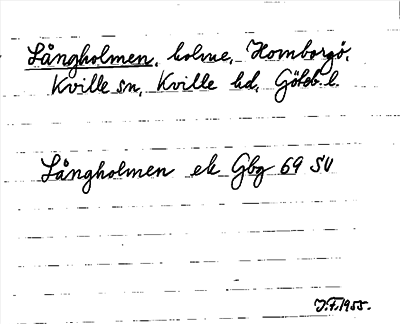 Långholmen, holme, Homborgö,
Kville sn, Kville hd, Göteb. l.
Långholmen ek Gbg 69 SV
J.F. 1955.